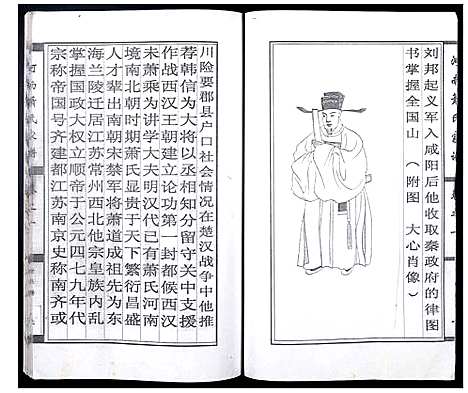 刘邦起义军入咸阳后他收取秦政府的律图
书掌握全国山（附图 大心肖像）
川险要郡县户口社会情况在楚汉战争中他推
荐韩信为大将以丞相知分留守关中支援
作战西汉王朝建立论功第一封都候西汉
未萧乘为讲学大夫明汉代已有萧氏河南
境南北朝时期萧氏显贵于天下繁衍昌盛
人才辈出南朝宋禁军将萧道成祖先为东
海兰陵迁居江苏常州西北他宗皇族内乱
掌握国大权立顺帝于公元四七九年代
宗称帝国号齐建都江苏南京史称南齐或